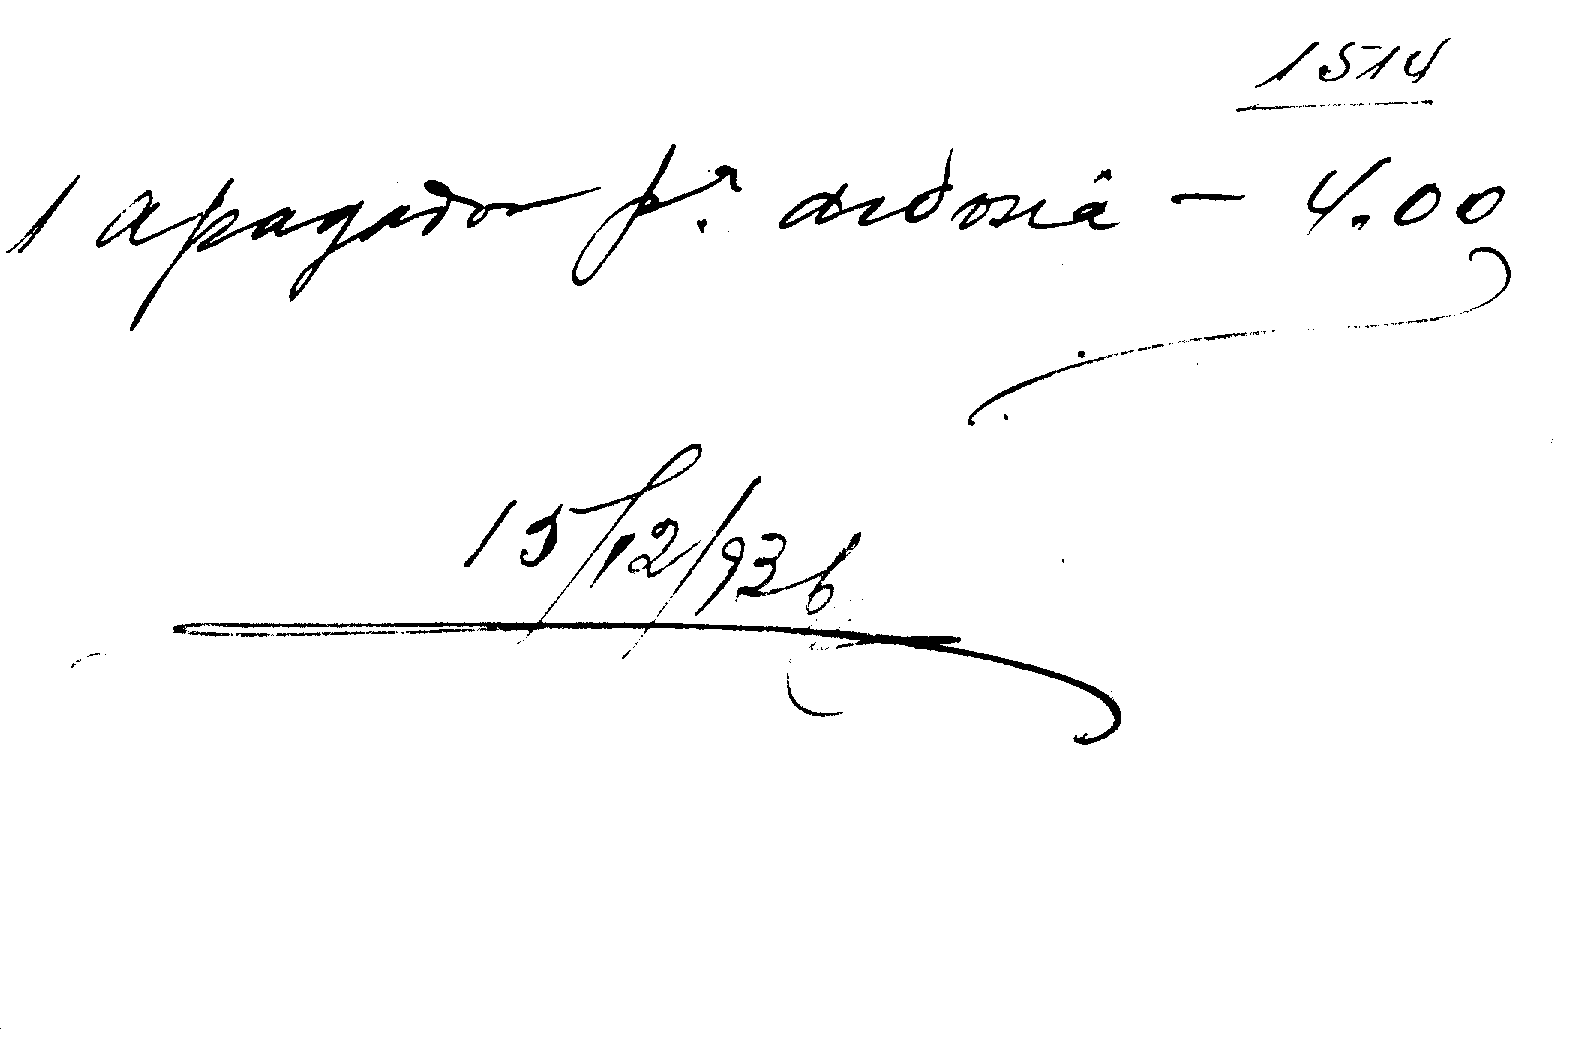 1514
1 apagador pª. ardosiâ — 4.00
15/12/936